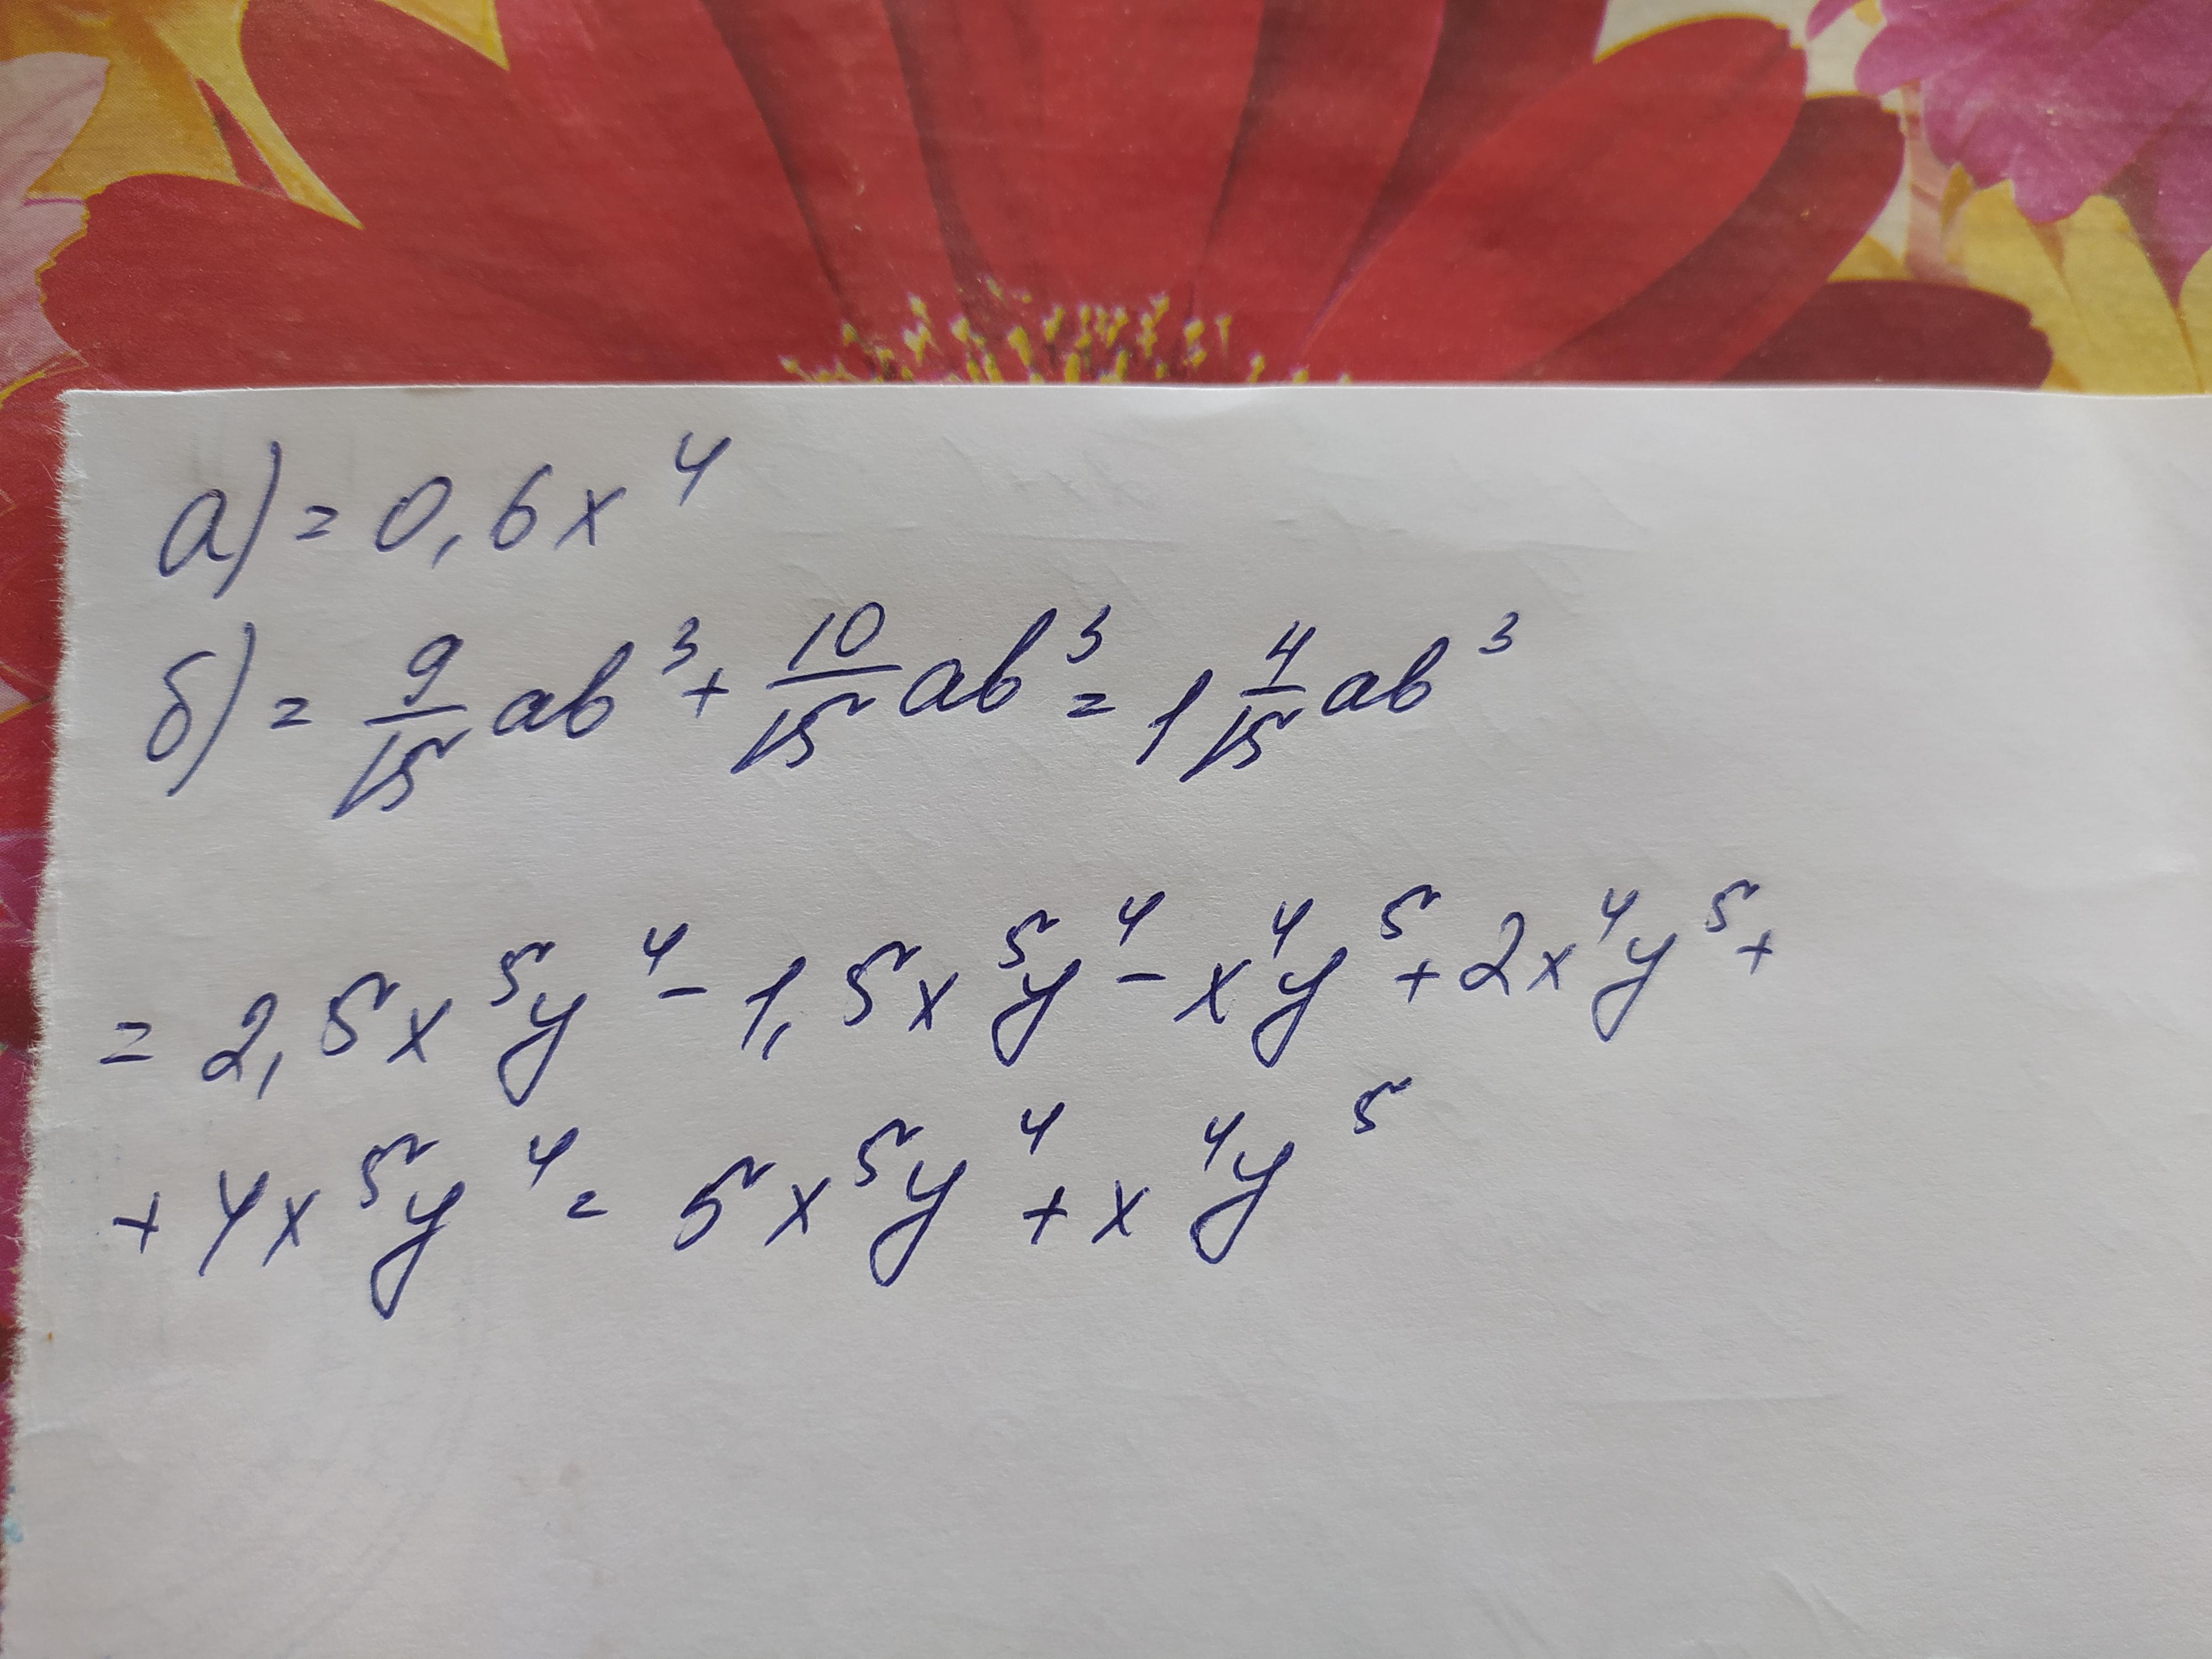 а) = 0,6x⁴
б) = 9/15 ab³ + 10/15 ab³ = 1 4/15 ab³
= 2,5x⁵y⁴ - 1,5x⁵y⁴ - x⁴y⁵ + 2x⁴y⁵ +
+ 4x⁵y⁴ = 5x⁵y⁴ + x⁴y⁵